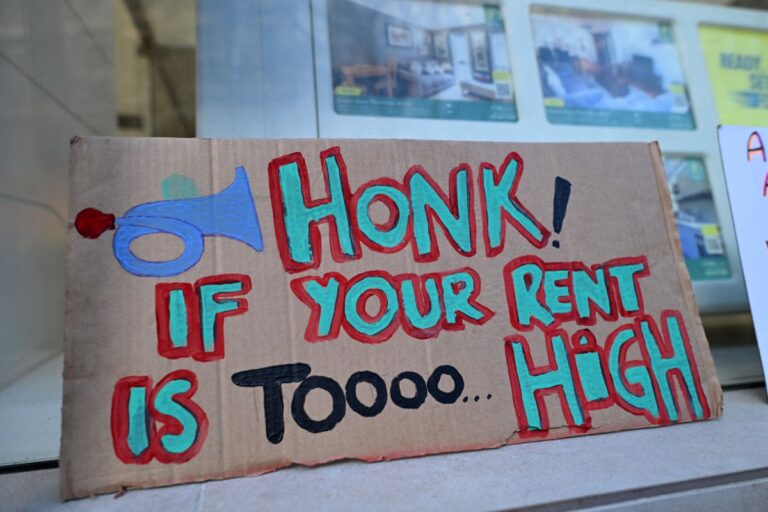 HONK!
IF YOUR RENT
IS TOOOO... HIGH
READY.